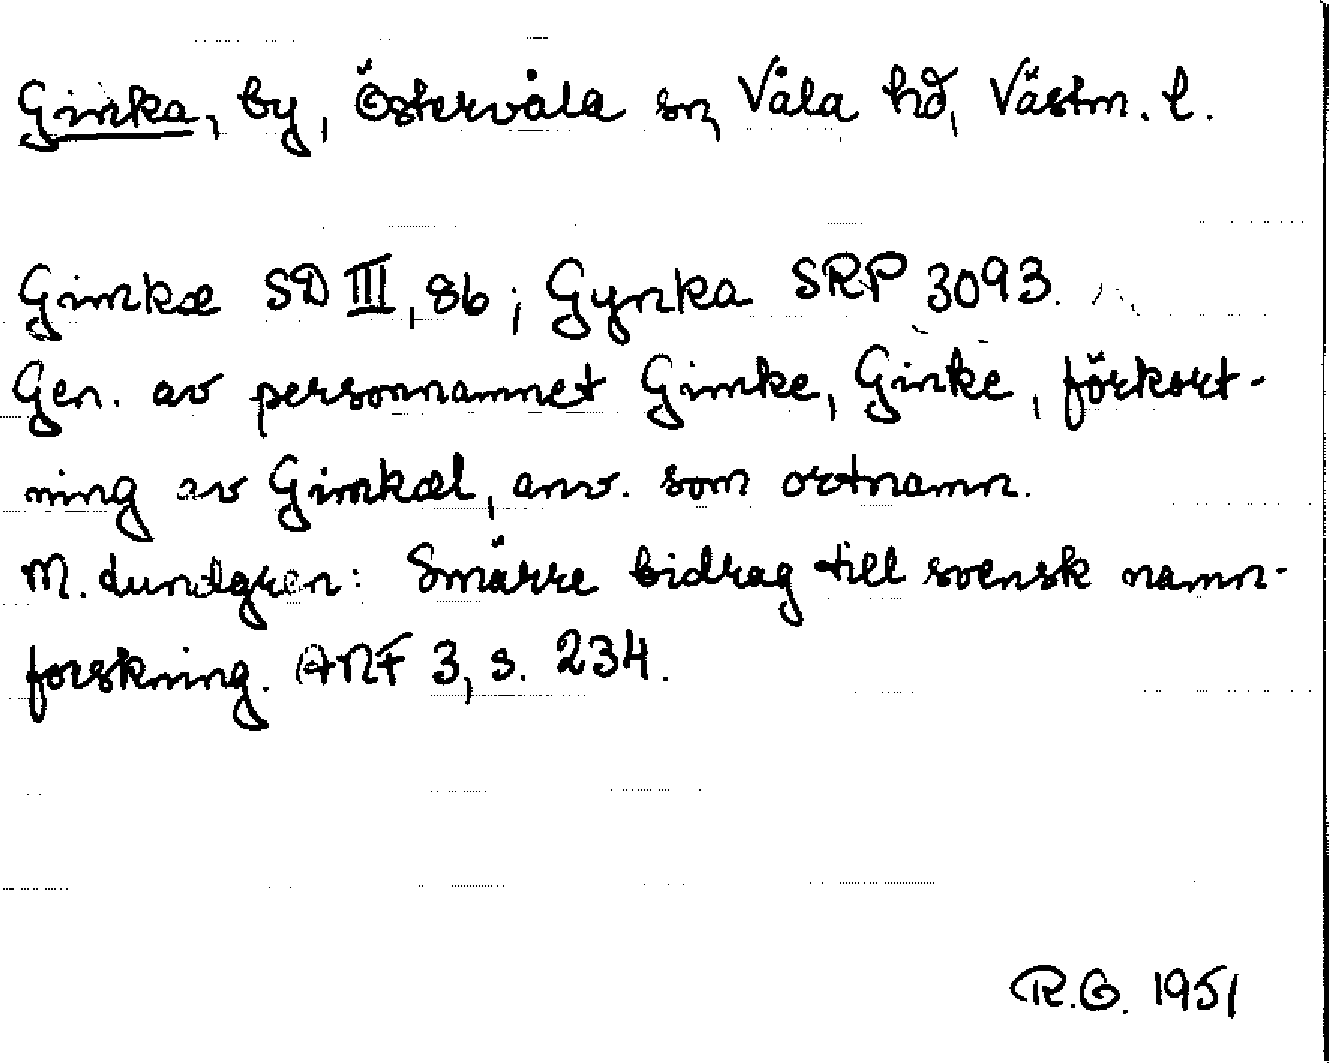 Ginka, by, Östervåla sn, Våla hd, Västm. l.
Gimkæ SD III, 86; Gynka SRP 3093.
Gen. av personnamnet Gimke, Ginke, förkort-
ning av Gimkæl, anv. som ortnamn.
M. Lundgren: Smärre bidrag till svensk namn-
forskning. ANF 3, s. 234.
R.G. 1951